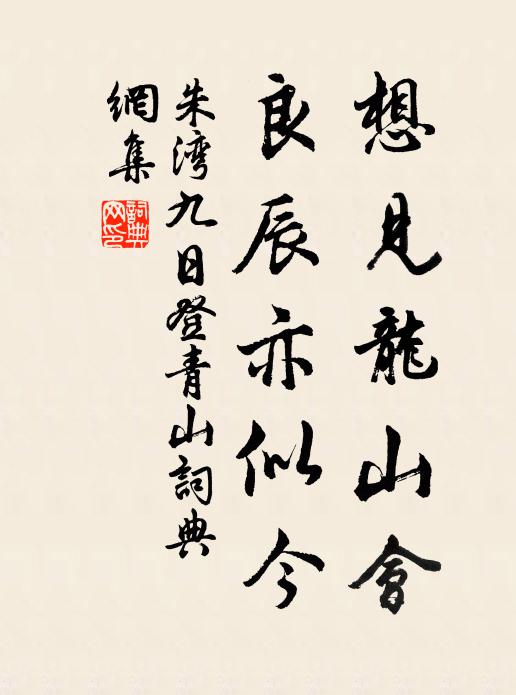 想見龍山會
良辰亦似今
朱灣九日登青山詞典
網集
詞典
网印